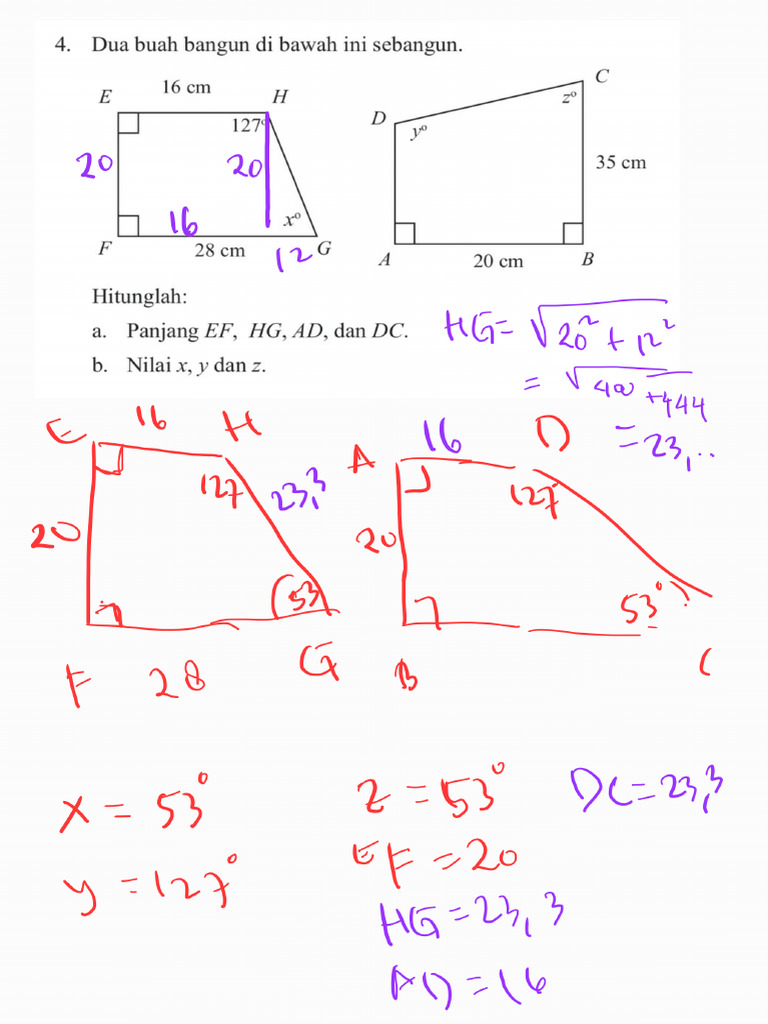 4. Dua buah bangun di bawah ini sebangun.
E 16 cm H
127°
20
20
16
x°
F 28 cm 12 G
C
z°
D
y°
35 cm
A 20 cm B
Hitunglah:
a. Panjang EF, HG, AD, dan DC.
b. Nilai x, y dan z.
HG = √20² + 12²
= √400 + 444
= 23,..
E 16 H
127
23,3
20
53
F 28 G
A 16 D
127°
20
53°
B C
x = 53°
y = 127°
z = 53°
EF = 20
HG = 23,3
AD = 16
DC = 23,3